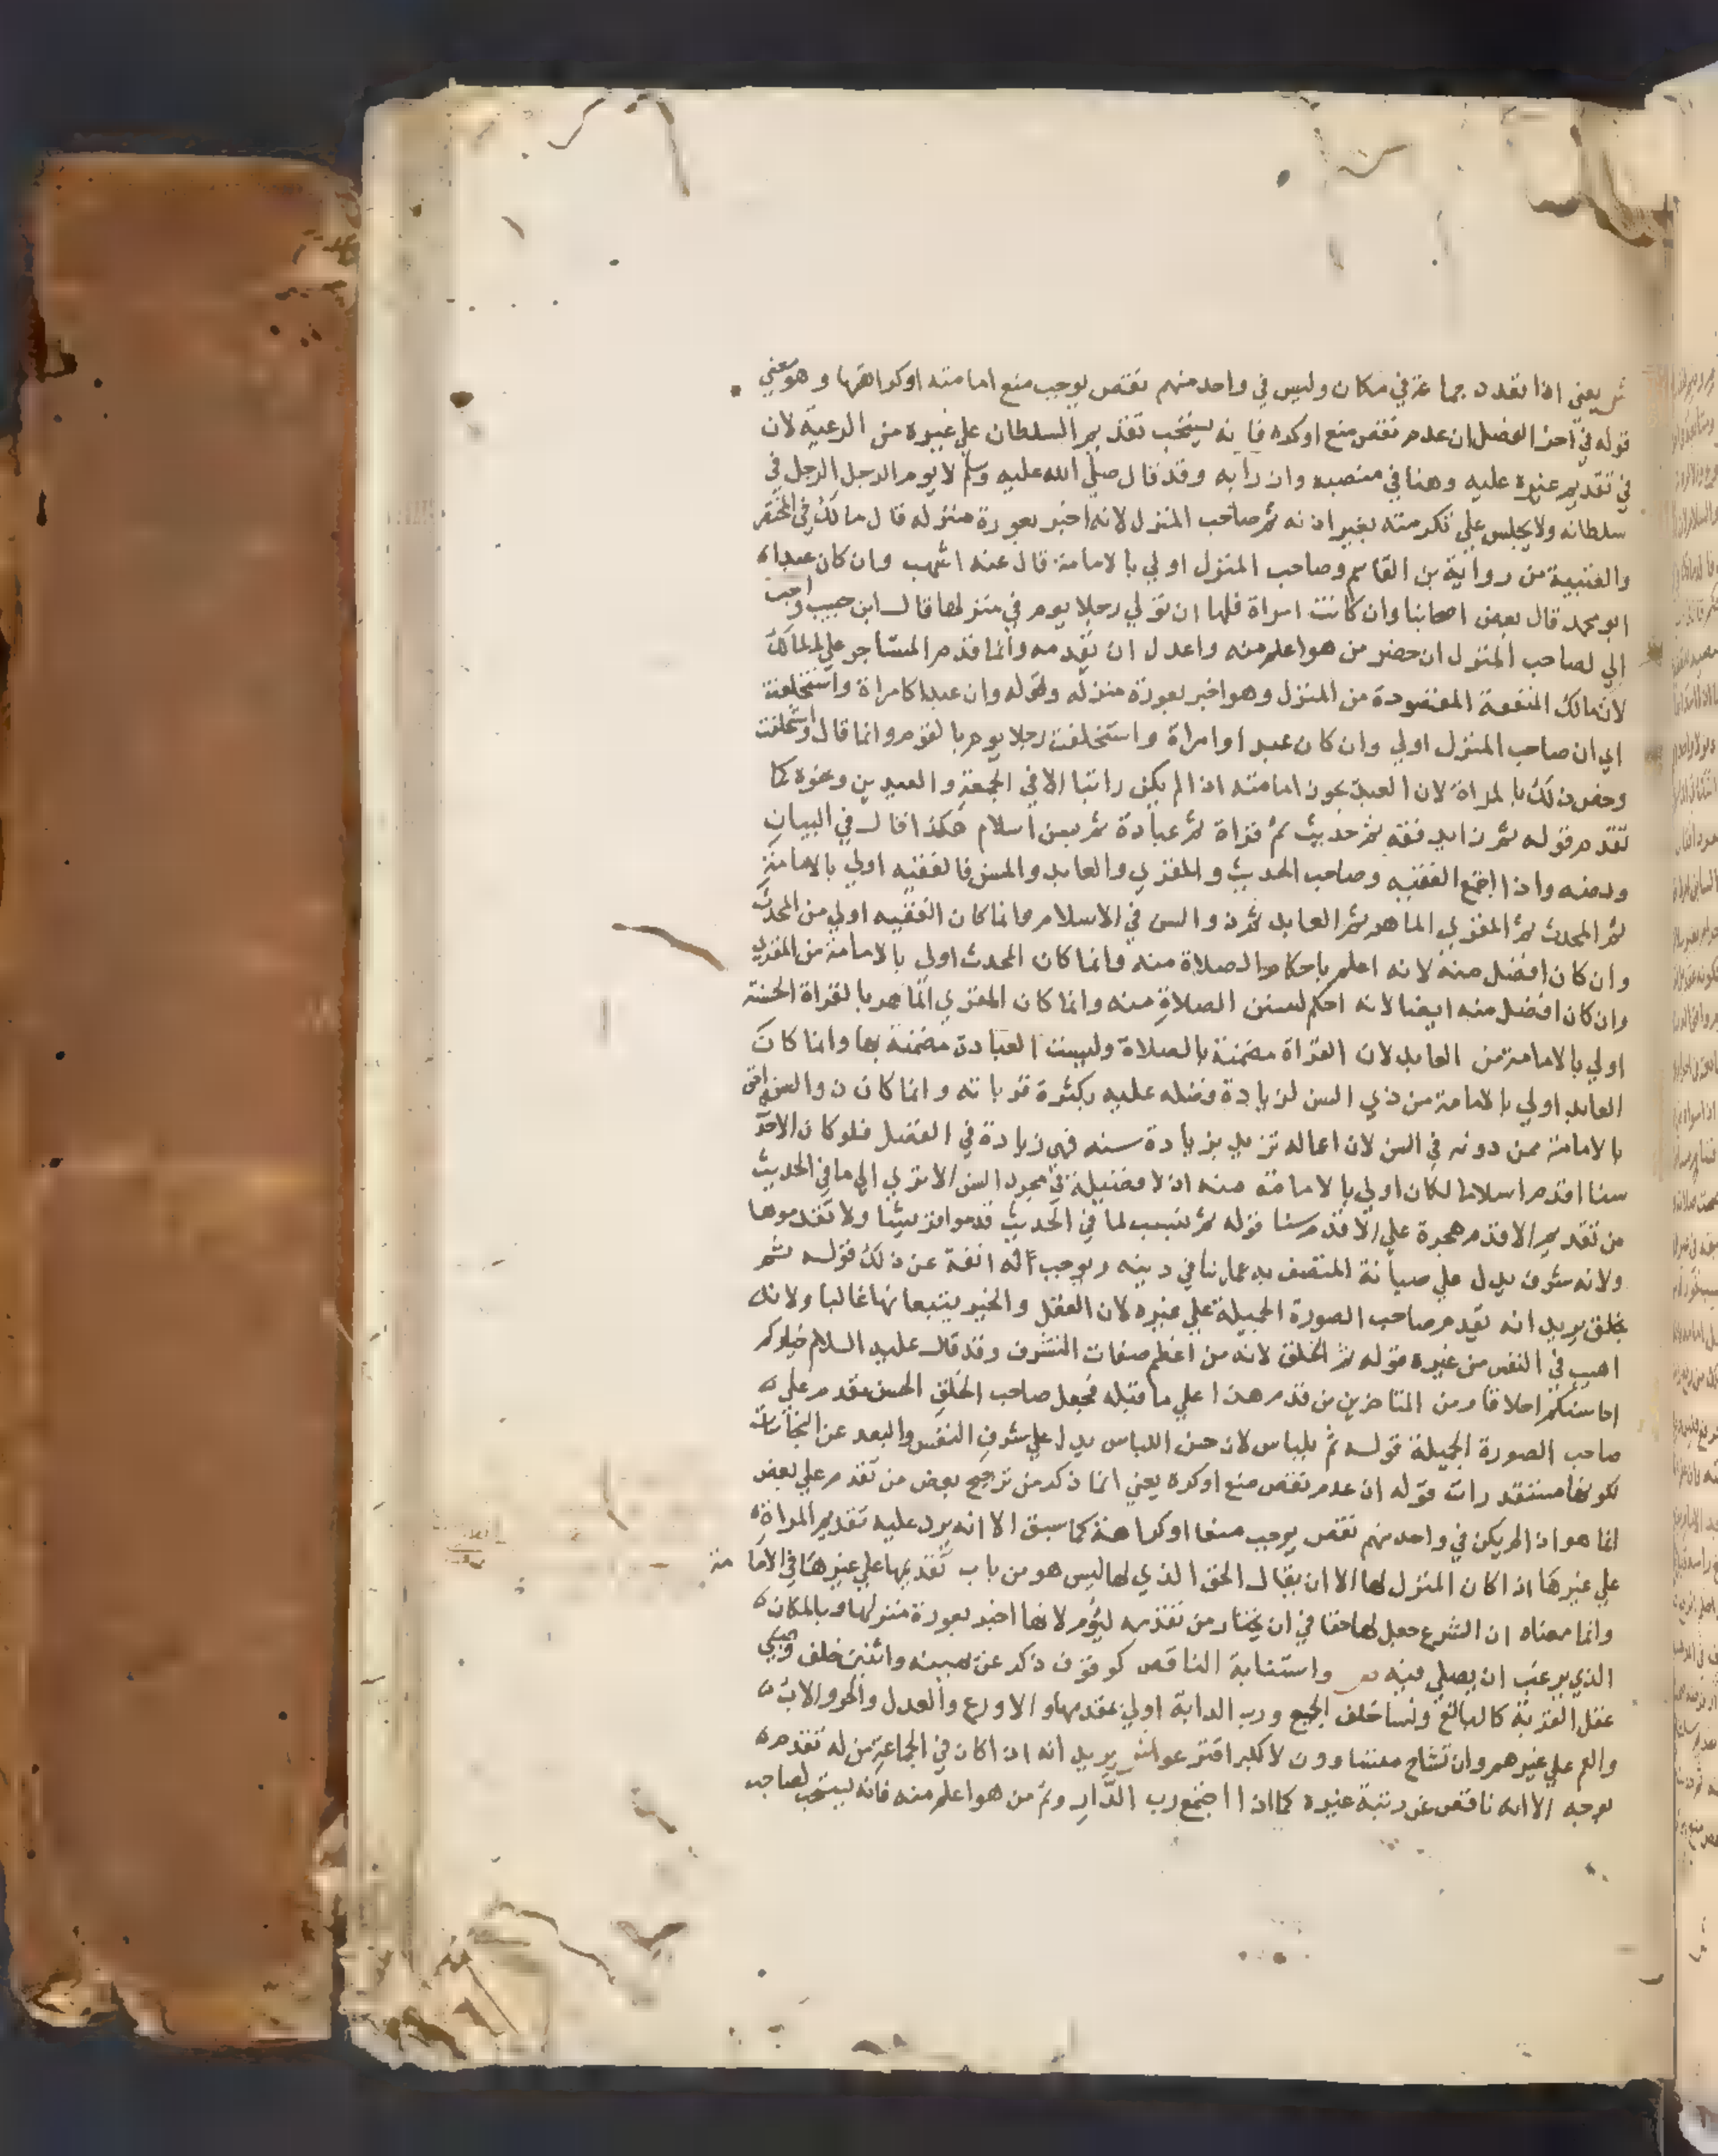 ش يعني اذا تعدد جماعة في مكان وليس في واحد منهم نقص يوجب منع امامته او كراهتها وهو معني
قوله في آخر الفصل ان عدم نقص منع او كره فانه يستحب تقديم السلطان علي غيره من الرعية لان
في تقديم غيره عليه وهنا في منصبه وان رآبه وقد قال صلي الله عليه وسلم لا يوم الرجل الرجل في
سلطانه ولا يجلس علي تكرمته بغير اذنه ثم صاحب المنزل لانه اخبر بعورة منزله قال مالك في المختصر
والعتبية من رواية بن القاسم وصاحب المنزل اولي بالامامة قال عنه اشهب وان كان عبدا ه
ابو محمد قال بعض اصحابنا وان كانت امراة فلها ان تولي رجلا يوم في منزلها قال ابن حبيب واحب
الي لصاحب المنزل ان حضر من هو اعلم منه واعدل ان يقدمه وانما قدم المستاجر علي المالك
لانه مالك المنفعة المقصودة من المنزل وهو اخبر بعورة منزله وقوله وان عبدا كامراة واستخلفت
اي ان صاحب المنزل اولي وان كان عبدا او امراة واستخلفت رجلا يوم بالقوم وانما قال واستخلفت
وخص ذلك بالمراة لان العبد تجوز امامته اذا لم يكن راتبا الا في الجمعة والعيدين ونحوه كما
تقدم قوله ثم زايد فقه ثم حديث ثم قراة ثم عبادة ثم بسن اسلام هكذا قال في البيان
ونصه واذا اجتمع الفقيه وصاحب الحديث والمقري والعابد والمسن فالفقيه اولي بالامامة
ثم المحدث ثم المقري الماهر ثم العابد ثم ذو السن في الاسلام وانما كان الفقيه اولي من المحدث
وان كان افضل منه لانه اعلم باحكام الصلاة منه وانما كان المحدث اولي بالامامة من المقري
وان كان افضل منه ايضا لانه احكم لسنن الصلاة منه وانما كان المقري الماهر بالقراة الحسنة
اولي بالامامة من العابد لان القراة مضمنة بالصلاة وليست العبادة مضمنة بها وانما كان
العابد اولي بالامامة من ذي السن لزيادة فضله عليه بكثرة قرباته وانما كان ذو السن احق
بالامامة ممن دونه في السن لان اعماله تزيد بزيادة سنه فهي زيادة في الفضل فلو كان الاحدث
سنا اقدم اسلاما لكان اولي بالامامة منه اذ لا فضيلة في مجرد السن الا تري الي ما في الحديث
من تقديم الاقدم هجرة علي الاقدم سنا قوله ثم بنسب لما في الحديث قدموا قريشا ولا تقدموها
ولانه شرف يدل علي صيانة المتصف به عما في دينه ويوجب له انفة عن ذلك قوله ثم
بخلق يريد انه يقدم صاحب الصورة الجميلة علي غيره لان العقل والخير يتبعانها غالبا ولانه
اهيب في النفس من غيره قوله ثم الخلق لانه من اعظم صفات التشرف وقد قال عليه السلام خياركم
احاسنكم اخلاقا ومن المتاخرين من قدم هذا علي ما قبله فجعل صاحب الخلق الحسن مقدم علي ه
صاحب الصورة الجميلة قوله ثم بلباس لان حسن اللباس يدل علي شرف النفس والبعد عن النجاسات
لكونها مستقذرات قوله ان عدم نقص منع او كره يعني انما ذكر من ترجيح بعض من تقدم علي بعض
انما هو اذا لم يكن في واحد منهم نقص يوجب منعا او كراهة كما سبق الا انه يرد عليه تقديم المراة
علي غيرها اذا كان المنزل لها الا ان يقال الحق الذي لها ليس هو من باب تقديمها علي غيرها في الامامة
وانما معناه ان الشرع جعل لها حقا في ان تختار من تقدمه ليؤم لانها اخبر بعورة منزلها وبالمكان
الذي يرغب ان يصلي فيه ص واستنابة الناقص كوقوف ذكر عن يمينه واثنين خلفه وصبي
عقل القربة كالبالغ ونسا خلف الجميع ورب الدابة اولي بمقدمها والاورع والعدل والحر والاب
والعم علي غيرهم وان تشاح متساوون لا لكبر اقترعوا ش يريد انه اذا كان في الجماعة من له تقدمة
بوجه الا انه ناقص عن رتبة غيره كما اذا اجتمع رب الدار وثم من هو اعلم منه فانه يستحب لصاحب